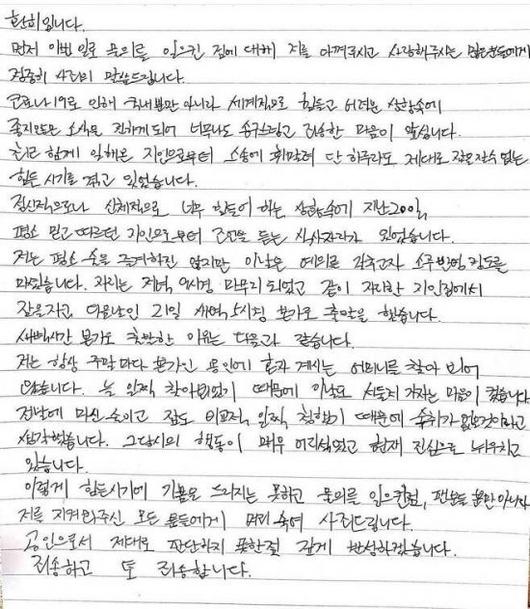 환희입니다.
먼저 이번 일로 물의를 일으킨 점에 대해 저를 아껴주시고 사랑해주시는 많은분들에게
정중히 사과의 말씀드립니다.
코로나19로 인해 국내뿐만 아니라 세계적으로 힘들고 어려운 상황속에
좋지않은 소식을 전하게 되어 너무나도 송구스럽고 죄송한 마음이 앞섭니다.
최근 함께 일해온 지인으로부터 소송에 휘말려 단 하루라도 제대로 잠을잘수 없는
힘든 시기를 겪고 있었습니다.
정신적으로나 신체적으로 너무 힘들어 하는 상황속에 지난 20일,
평소 믿고 따르던 지인으로부터 조언을 듣는 식사자리가 있었습니다.
저는 평소 술을 즐겨하진 않지만 이날은 예의를 갖추고자 소주 반병 정도를
마셨습니다. 자리는 저녁 9시경 마무리 되었고 같이 자리한 지인집에서
잠을자고, 다음날인 21일 새벽 5시경 본가로 출발을 했습니다.
새벽시간 본가로 출발한 이유는 다음과 같습니다.
저는 항상 주말마다 본가인 용인에 홀로 계시는 어머니를 찾아 뵈어
왔습니다. 늘 일찍 찾아뵈었기 때문에 이날도 서둘러 가자는 마음이 컸습니다
전날에 마신 술이고 잠도 비교적 일찍 청했기 때문에 숙취가 없을것이라고
생각했습니다. 그당시의 행동이 매우 어리석었고 현재 진심으로 뉘우치고
있습니다.
이렇게 힘든시기에 기쁨을 드리지는 못하고 물의를 일으킨점, 팬분들 뿐만 아니라
저를 지켜봐주신 모든 분들에게 머리 숙여 사죄드립니다.
공인으로서 제대로 판단하지 못한점 깊게 반성하겠습니다.
죄송하고 또 죄송합니다.